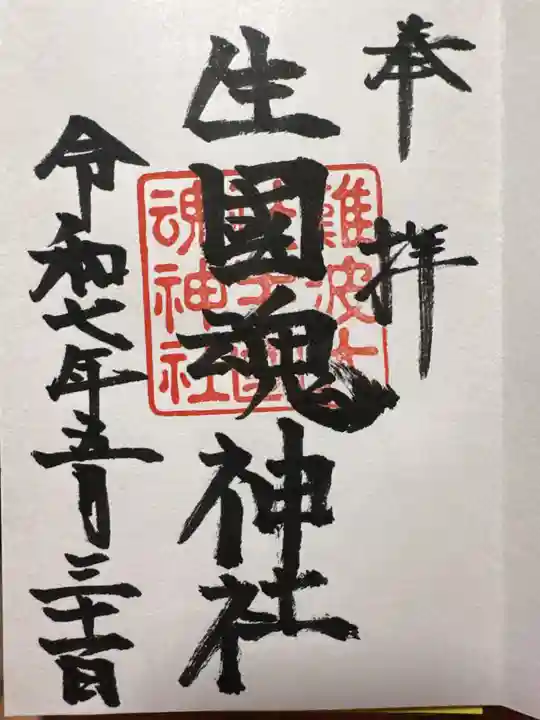 奉拝
生國魂神社
令和七年五月三十一日
難波大
魂神社